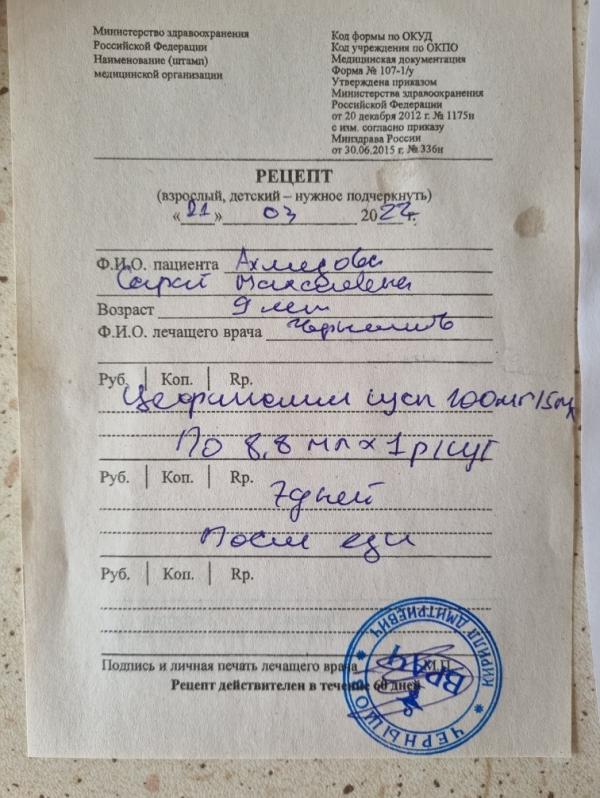 Министерство здравоохранения
Российской Федерации
Наименование (штамп)
медицинской организации
Код формы по ОКУД
Код учреждения по ОКПО
Медицинская документация
Форма № 107-1/у
Утверждена приказом
Министерства здравоохранения
Российской Федерации
от 20 декабря 2012 г. № 1175н
с изм. согласно приказу
Минздрава России
от 30.06.2015 г. № 336н
РЕЦЕПТ
(взрослый, детский – нужное подчеркнуть)
«21» 03 2022г.
Ф.И.О. пациента Ахмедова
Возраст 9 лет
Ф.И.О. лечащего врача Чернышов
Руб. Коп. Rp.
сусп 100мг/5мл
По 8,8 мл х 1 р/сут
Руб. Коп. Rp.
7 дней
После еды
Руб. Коп. Rp.
Подпись и личная печать лечащего врача М.П.
Рецепт действителен в течение 60 дней
ЧЕРНЫШОВ КИРИЛЛ ДМИТРИЕВИЧ
ВРАЧ